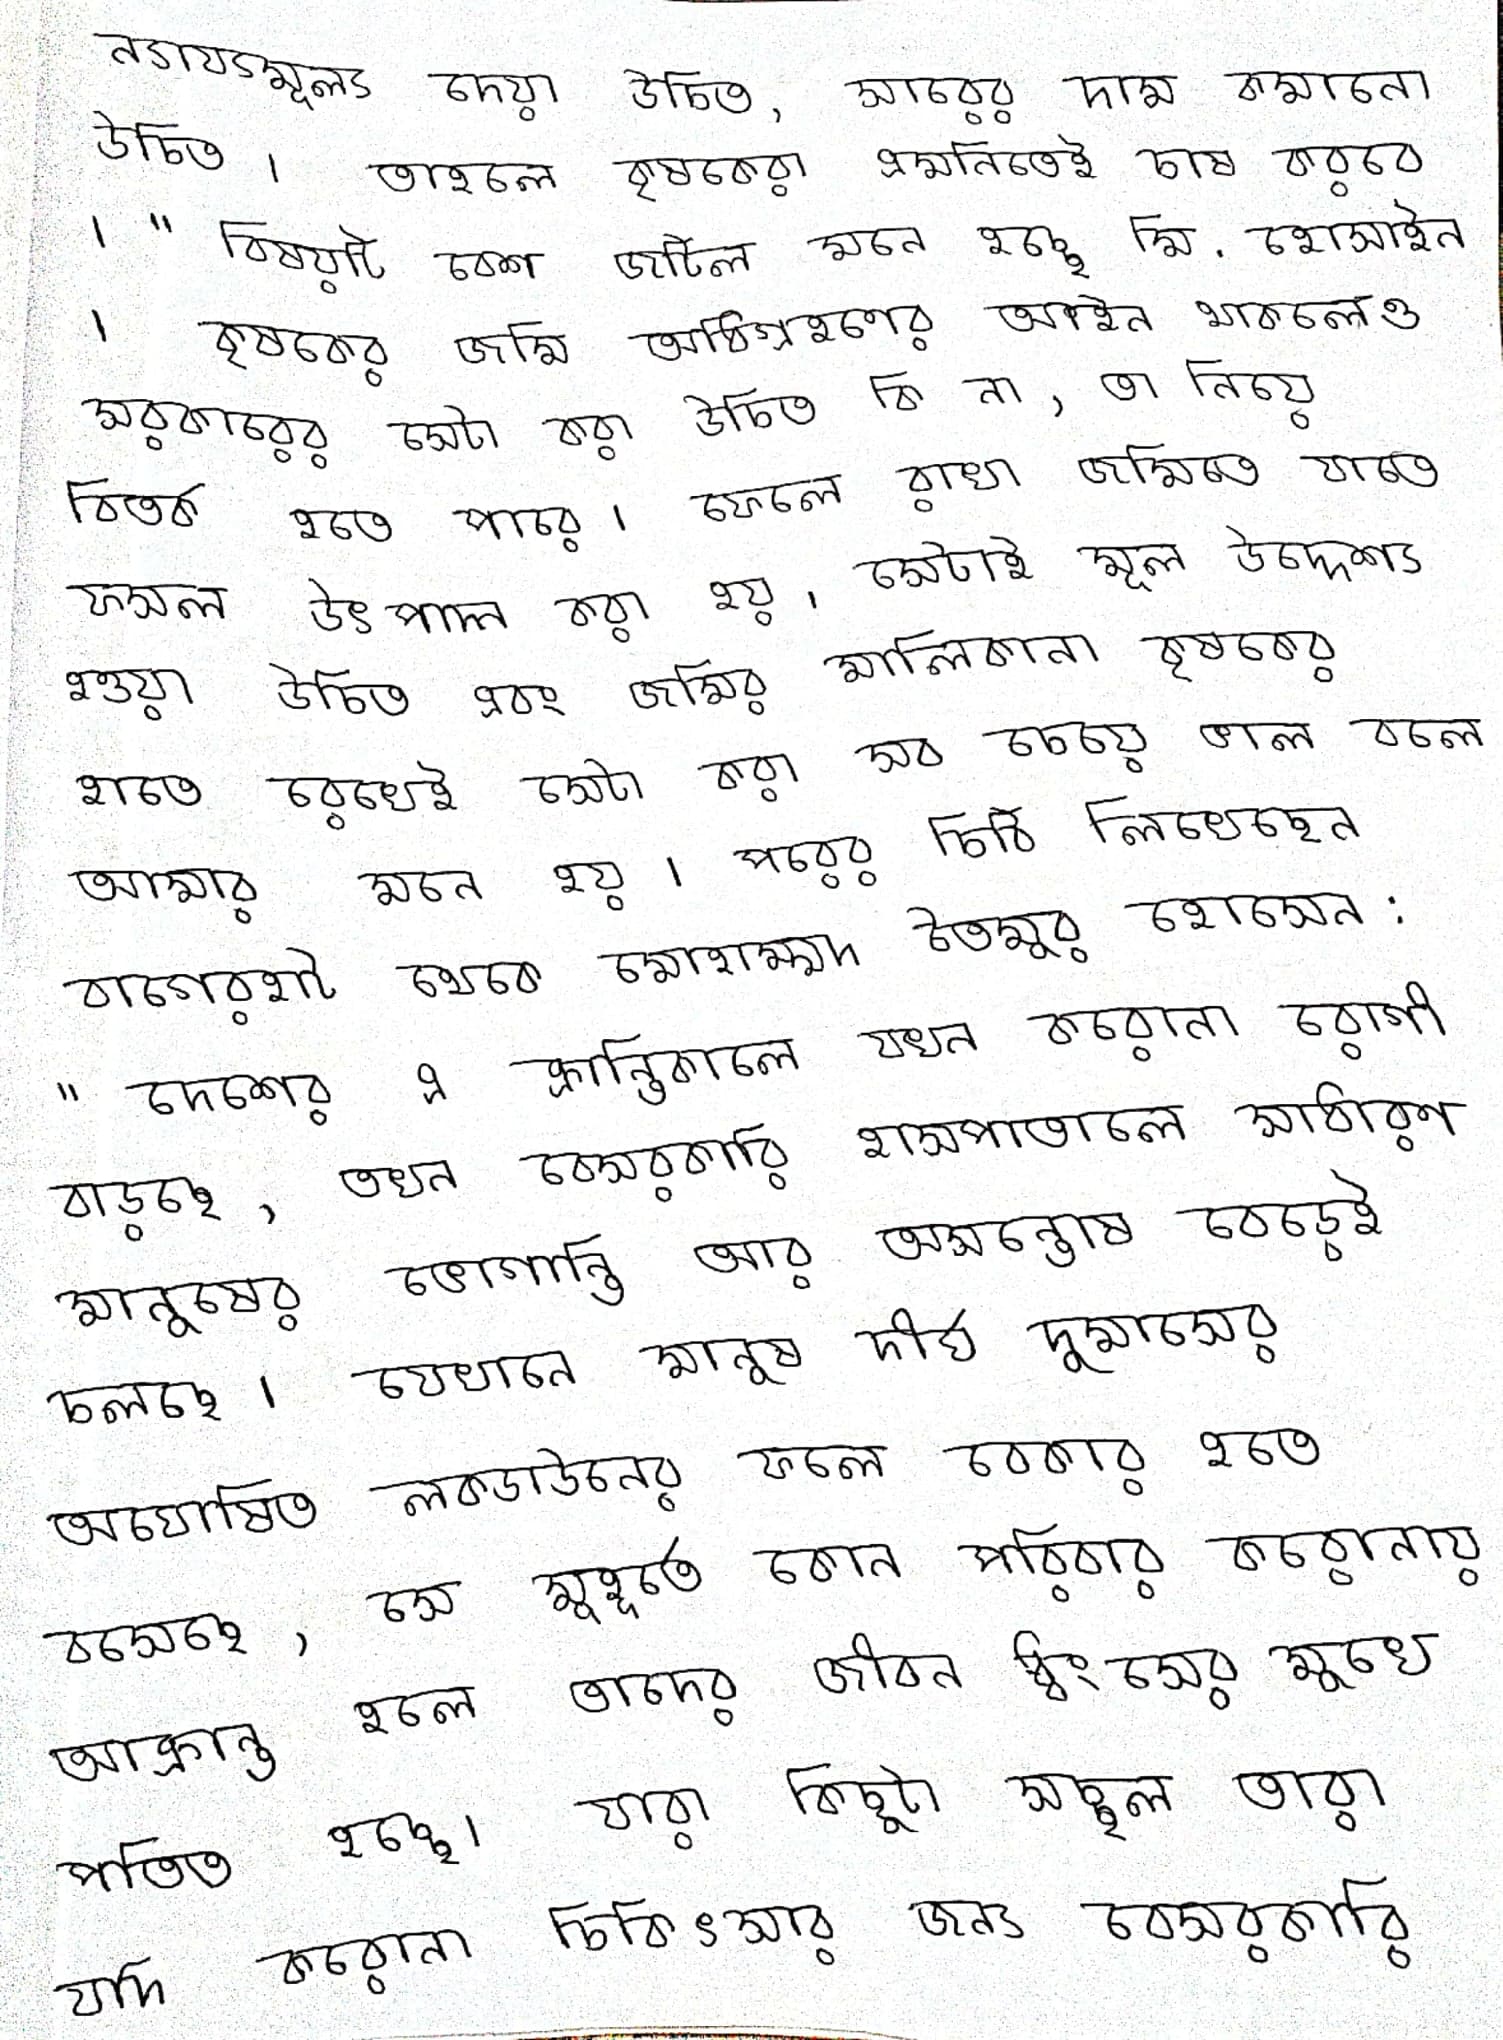 ন্যায্যমূল্য দেয়া উচিত, সারের দাম কমানো
উচিত । তাহলে কৃষকেরা এমনিতেই চাষ করবে
। " বিষয়টি বেশ জটিল মনে হচ্ছে মি. হোসাইন
। কৃষকের জমি অধিগ্রহণের আইন থাকলেও
সরকারের সেটা করা উচিত কি না, তা নিয়ে
বিতর্ক হতে পারে। ফেলে রাখা জমিতে যাতে
ফসল উৎপাদন করা হয়, সেটাই মূল উদ্দেশ্য
হওয়া উচিত এবং জমির মালিকানা কৃষকের
হাতে রেখেই সেটা করা সব চেয়ে ভাল বলে
আমার মনে হয়। পরের চিঠি লিখেছেন
বাগেরহাট থেকে মোহাম্মদ তৈমুর হোসেন :
" দেশের এ ক্রান্তিকালে যখন করোনা রোগী
বাড়ছে, তখন বেসরকারি হাসপাতালে সাধারণ
মানুষের ভোগান্তি আর অসন্তোষ বেড়েই
চলছে। যেখানে মানুষ দীর্ঘ দুমাসের
অঘোষিত লকডাউনের ফলে বেকার হতে
বসেছে, সে মুহূর্তে কোন পরিবার করোনায়
আক্রান্ত হলে তাদের জীবন ধ্বিংসের মুখে
পতিত হচ্ছে। যারা কিছুটা সচ্ছল তারা
যদি করোনা চিকিৎসার জন্য বেসরকারি